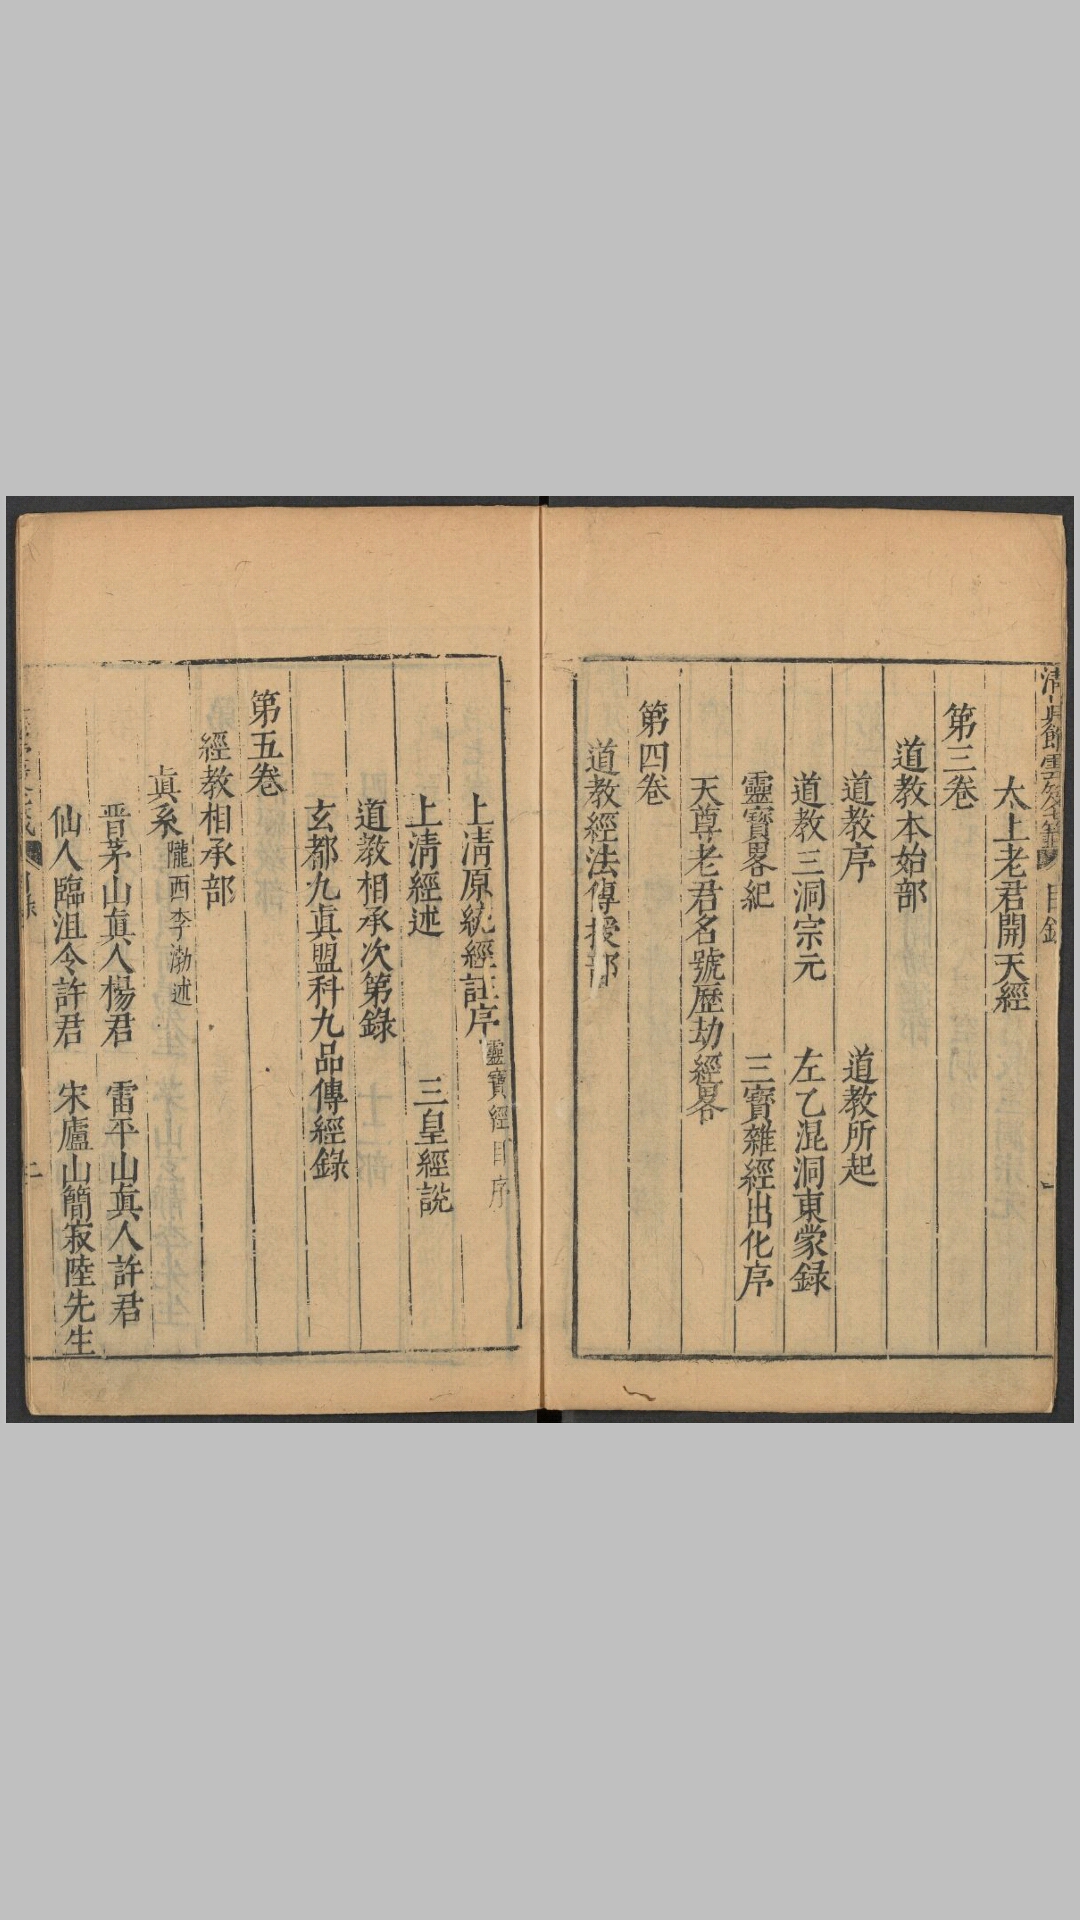 清真館雲笈籤 目錄
太上老君開天經
第三卷
道教本始部
道教序 道教所起
道教三洞宗元 左乙混洞東蒙錄
靈寶畧紀 三寶雜經出化序
天尊老君名號歷劫經畧
第四卷
道教經法傳授部
上清原統經註序 靈寶經目序
上清經述 三皇經說
道教相承次第錄
玄都九真盟科九品傳經錄
第五卷
經教相承部
眞系 隴西李渤述
晋茅山眞人楊君 雷平山眞人許君
仙人臨沮令許君 宋廬山簡寂陸先生